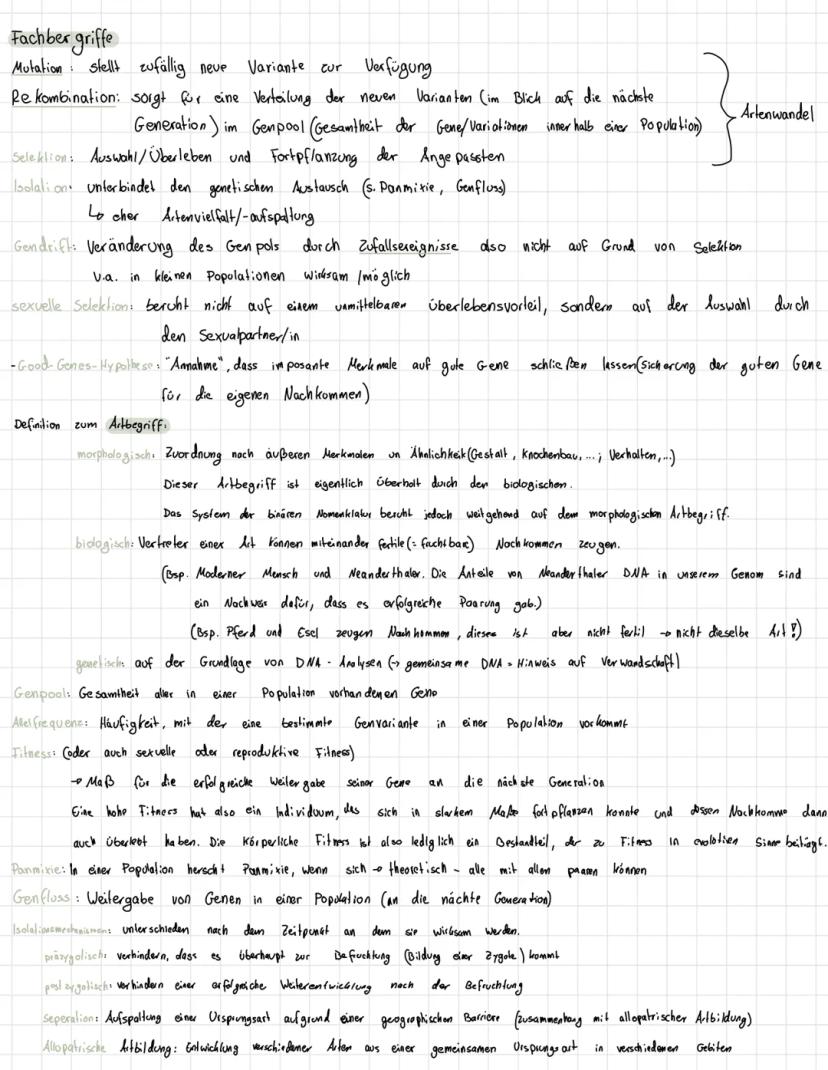 Fachbergriffe
Mutation: stellt zufällig neue Variante zur Verfügung
Rekombination: sorgt für eine Verteilung der neuen Varianten (im Blick auf die nächste
Generation) im Genpool (Gesamtheit der Gene/Variationen innerhalb einer Population)
Artenwandel
Selektion: Auswahl/Überleben und Fortpflanzung der Angepassten
Isolation: unterbindet den genetischen Austausch (s. Panmixie, Genfluss)
↳ eher Artenvielfalt/-aufspaltung
Gendrift: Veränderung des Genpols durch Zufallsereignisse also nicht auf Grund von Selektion
v.a. in kleinen Populationen wirksam/möglich
sexuelle Selektion: beruht nicht auf einem unmittelbaren Überlebensvorteil, sondern auf der Auswahl durch
den Sexualpartner/in
-Good-Genes-Hypothese: "Annahme", dass imposante Merkmale auf gute Gene schließen lassen (Sicherung der guten Gene
für die eigenen Nachkommen)
Definition zum Artbegriff:
morphologisch: Zuordnung nach äußeren Merkmalen un Ähnlichkeit (Gestalt, Knochenbau, ...; Verhalten,...)
Dieser Artbegriff ist eigentlich überholt durch den biologischen.
Das System der binären Nomenklatur beruht jedoch weitgehend auf dem morphologischen Artbegriff.
biologisch: Vertreter einer Art können miteinander fertile (= fruchtbare) Nachkommen zeugen.
(Bsp. Moderner Mensch und Neanderthaler. Die Anteile von Neanderthaler DNA in unserem Genom sind
ein Nachweis dafür, dass es erfolgreiche Paarung gab.)
(Bsp. Pferd und Esel zeugen Nachkommen, dieses ist aber nicht fertil → nicht dieselbe Art!)
genetisch: auf der Grundlage von DNA-Analysen (→ gemeinsame DNA = Hinweis auf Verwandschaft)
Genpool: Gesamtheit aller in einer Population vorhandenen Gene
Allelfrequenz: Häufigkeit, mit der eine bestimmte Genvariante in einer Population vorkommt
Fitness: (oder auch sexuelle oder reproduktive Fitness)
→ Maß für die erfolgreiche Weitergabe seiner Gene an die nächste Generation
Eine hohe Fitness hat also ein Individuum, das sich in starkem Maße fortpflanzen konnte und dessen Nachkomme dann
auch überlebt haben. Die körperliche Fitness ist also lediglich ein Bestandteil, der zu Fitness in evolutien Sinne beiträgt.
Panmixie: In einer Population herrscht Panmixie, wenn sich → theoretisch - alle mit allen paaren können
Genfluss: Weitergabe von Genen in einer Population (an die nächte Generation)
Isolationsmechanismen: unterschieden nach dem Zeitpunkt an dem sie wirksam werden.
präzygotisch: verhindern, dass es überhaupt zur Befruchtung (Bildung einer Zygote) kommt
postzygotisch: verhindern einer erfolgreiche Weiterentwicklung nach der Befruchtung
Seperation: Aufspaltung einer Ursprungsart aufgrund einer geographischen Barriere (zusammenhang mit allopatrischer Artbildung)
Allopatrische Artbildung: Entwicklung verschiedener Arten aus einer gemeinsamen Ursprungsart in verschiedenen Gebiten